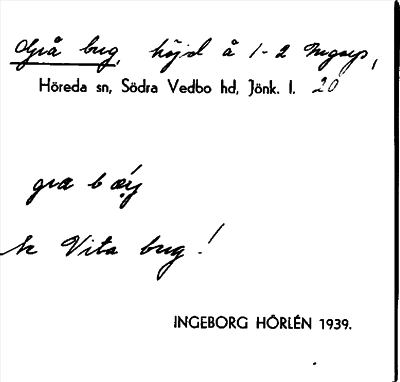 Grå bug, höjd å 1-2 mgsp,
Höreda sn, Södra Vedbo hd, Jönk. l. 20
gra b
se Vita bug!
INGEBORG HÖRLÉN 1939.